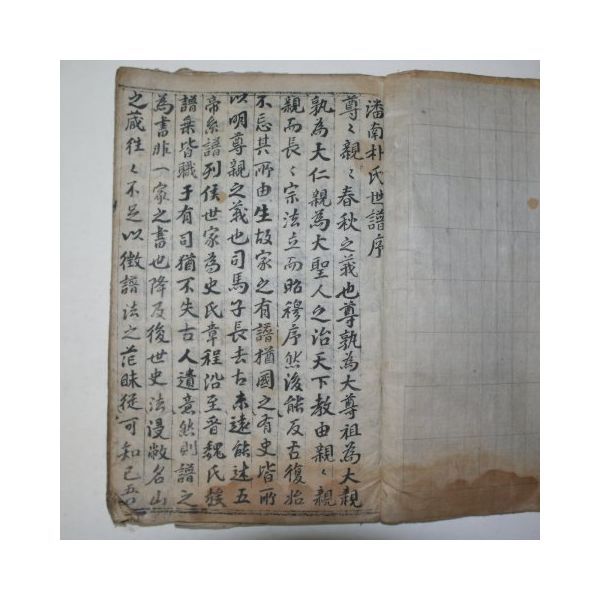 潘南朴氏世譜序
尊〻親〻春秋之義也尊孰為大尊祖為大親
孰為大仁親為大聖人之治天下教由親〻親
親而長〻宗法立而昭穆序然後能反古復始
不忘其所由生故家之有譜猶國之有史皆所
以明尊親之義也司馬子長去古未遠能述五
帝系譜列侯世家為史氏章程沿至晉魏氏族
譜乘皆職于有司猶不失古人遺意然則譜之
為書非一家之書也降及後世史法浸敝名山
之藏往〻不足以徵譜法之茫昧從可知已吾